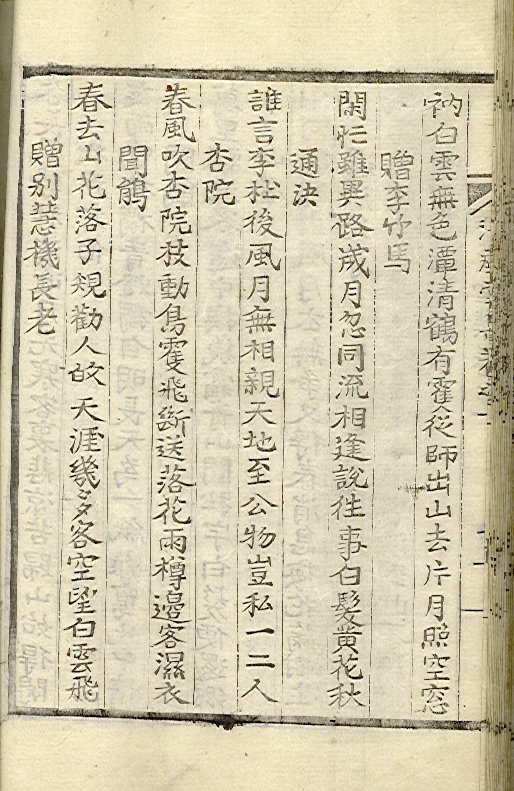 衲白雲無色潭清鶴有寉從師出山去片月照空窓
贈李竹馬
閑忙雖異路歲月忽同流相逢說徃事白髮黄花秋
通決
誰言李杜後風月無相親天地至公物豈私一二人
杏院
春風吹杏院枝動鳥䨥飛斷送落花雨樽邊客濕衣
聞鵑
春去山花落子規勸人故天涯幾多客空望白雲飛
贈別慧機長老